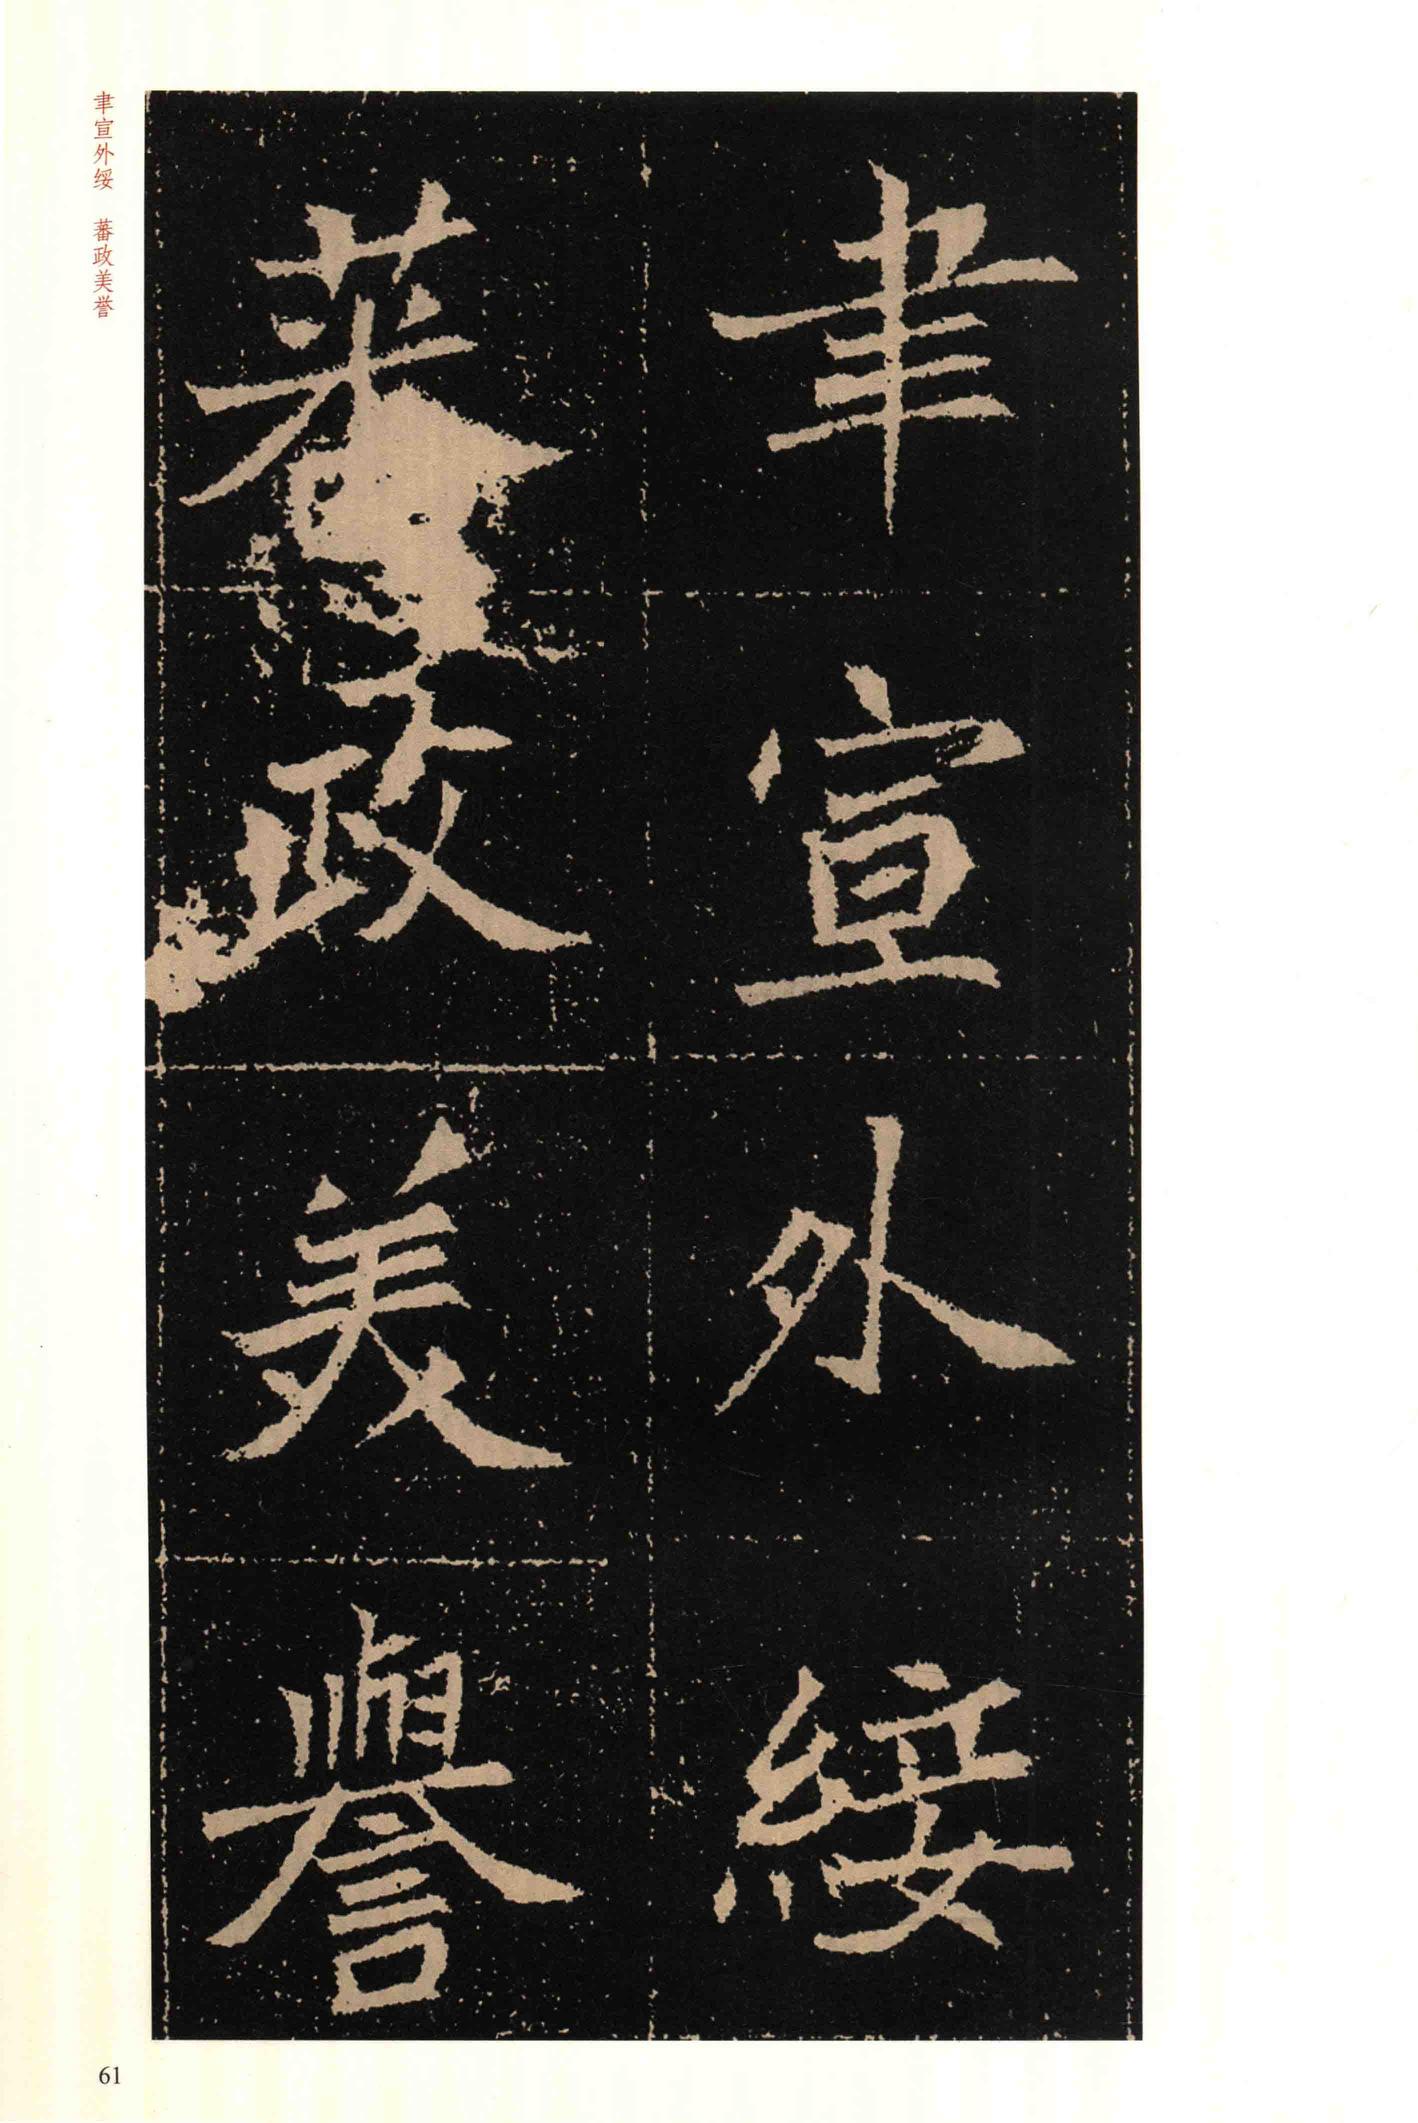 聿宣外綏
蕃政美譽
聿宣外绥 蕃政美誉
61